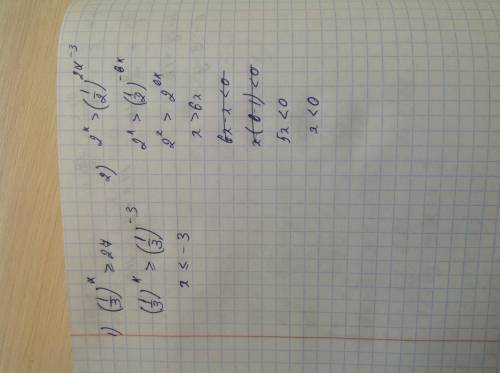 1) (1/3)^x ≥ 27
(1/3)^x ≥ (1/3)^-3
x ≤ -3
2) 2^x > (1/2)^2x^-3
2^x > (1/2)^-6x
2^x > 2^6x
x > 6x
6x - x < 0
x(6-1) < 0
5x < 0
x < 0